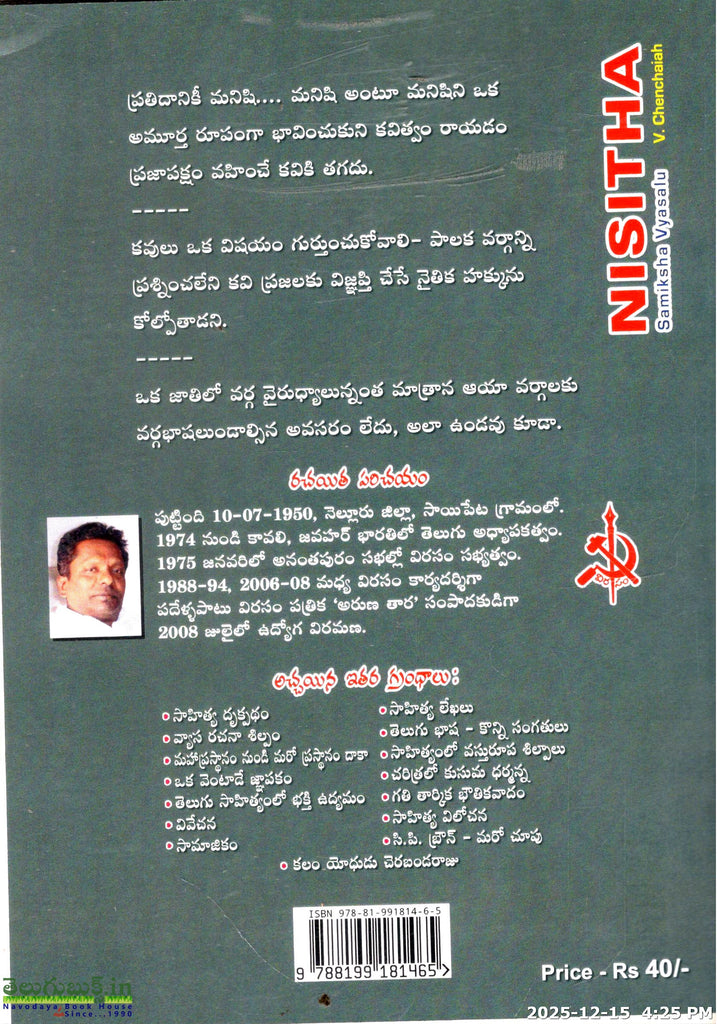 ప్రతిదానికీ మనిషి.... మనిషి అంటూ మనిషిని ఒక
అమూర్త రూపంగా భావించుకుని కవిత్వం రాయడం
ప్రజాపక్షం వహించే కవికి తగదు.
-----
కవులు ఒక విషయం గుర్తుంచుకోవాలి- పాలక వర్గాన్ని
ప్రశ్నించలేని కవి ప్రజలకు విజ్ఞప్తి చేసే నైతిక హక్కును
కోల్పోతాడని.
-----
ఒక జాతిలో వర్గ వైరుధ్యాలున్నంత మాత్రాన ఆయా వర్గాలకు
వర్గభాషలుండాల్సిన అవసరం లేదు, అలా ఉండవు కూడా.
NISITHA
Samiksha Vyasalu
V. Chenchaiah
రచయిత పరిచయం
పుట్టింది 10-07-1950, నెల్లూరు జిల్లా, సాయిపేట గ్రామంలో.
1974 నుండి కావలి, జవహర్ భారతిలో తెలుగు అధ్యాపకత్వం.
1975 జనవరిలో అనంతపురం సభల్లో విరసం సభ్యత్వం.
1988-94, 2006-08 మధ్య విరసం కార్యదర్శిగా
పదేళ్ళపాటు విరసం పత్రిక 'అరుణ తార' సంపాదకుడిగా
2008 జులైలో ఉద్యోగ విరమణ.
విరసం
అచ్చయిన ఇతర గ్రంథాలు:
• సాహిత్య దృక్పథం
• వ్యాస రచనా శిల్పం
• మహాప్రస్థానం నుండీ మరో ప్రస్థానం దాకా
• ఒక వెంటాడే జ్ఞాపకం
• తెలుగు సాహిత్యంలో భక్తి ఉద్యమం
• వివేచన
• సామాజికం
• సాహిత్య లేఖలు
• తెలుగు భాష - కొన్ని సంగతులు
• సాహిత్యంలో వస్తురూప శిల్పాలు
• చరిత్రలో కుసుమ ధర్మన్న
• గతి తార్కిక భౌతికవాదం
• సాహిత్య విలోచన
• సి.పి. బ్రౌన్ - మరో చూపు
• కలం యోధుడు చెరబండరాజు
ISBN 978-81-991814-6-5
9 788199 181465
Price - Rs 40/-
తెలుగుబుక్.in
Navodaya Book House
Since...1990
2025-12-15 4:25 PM